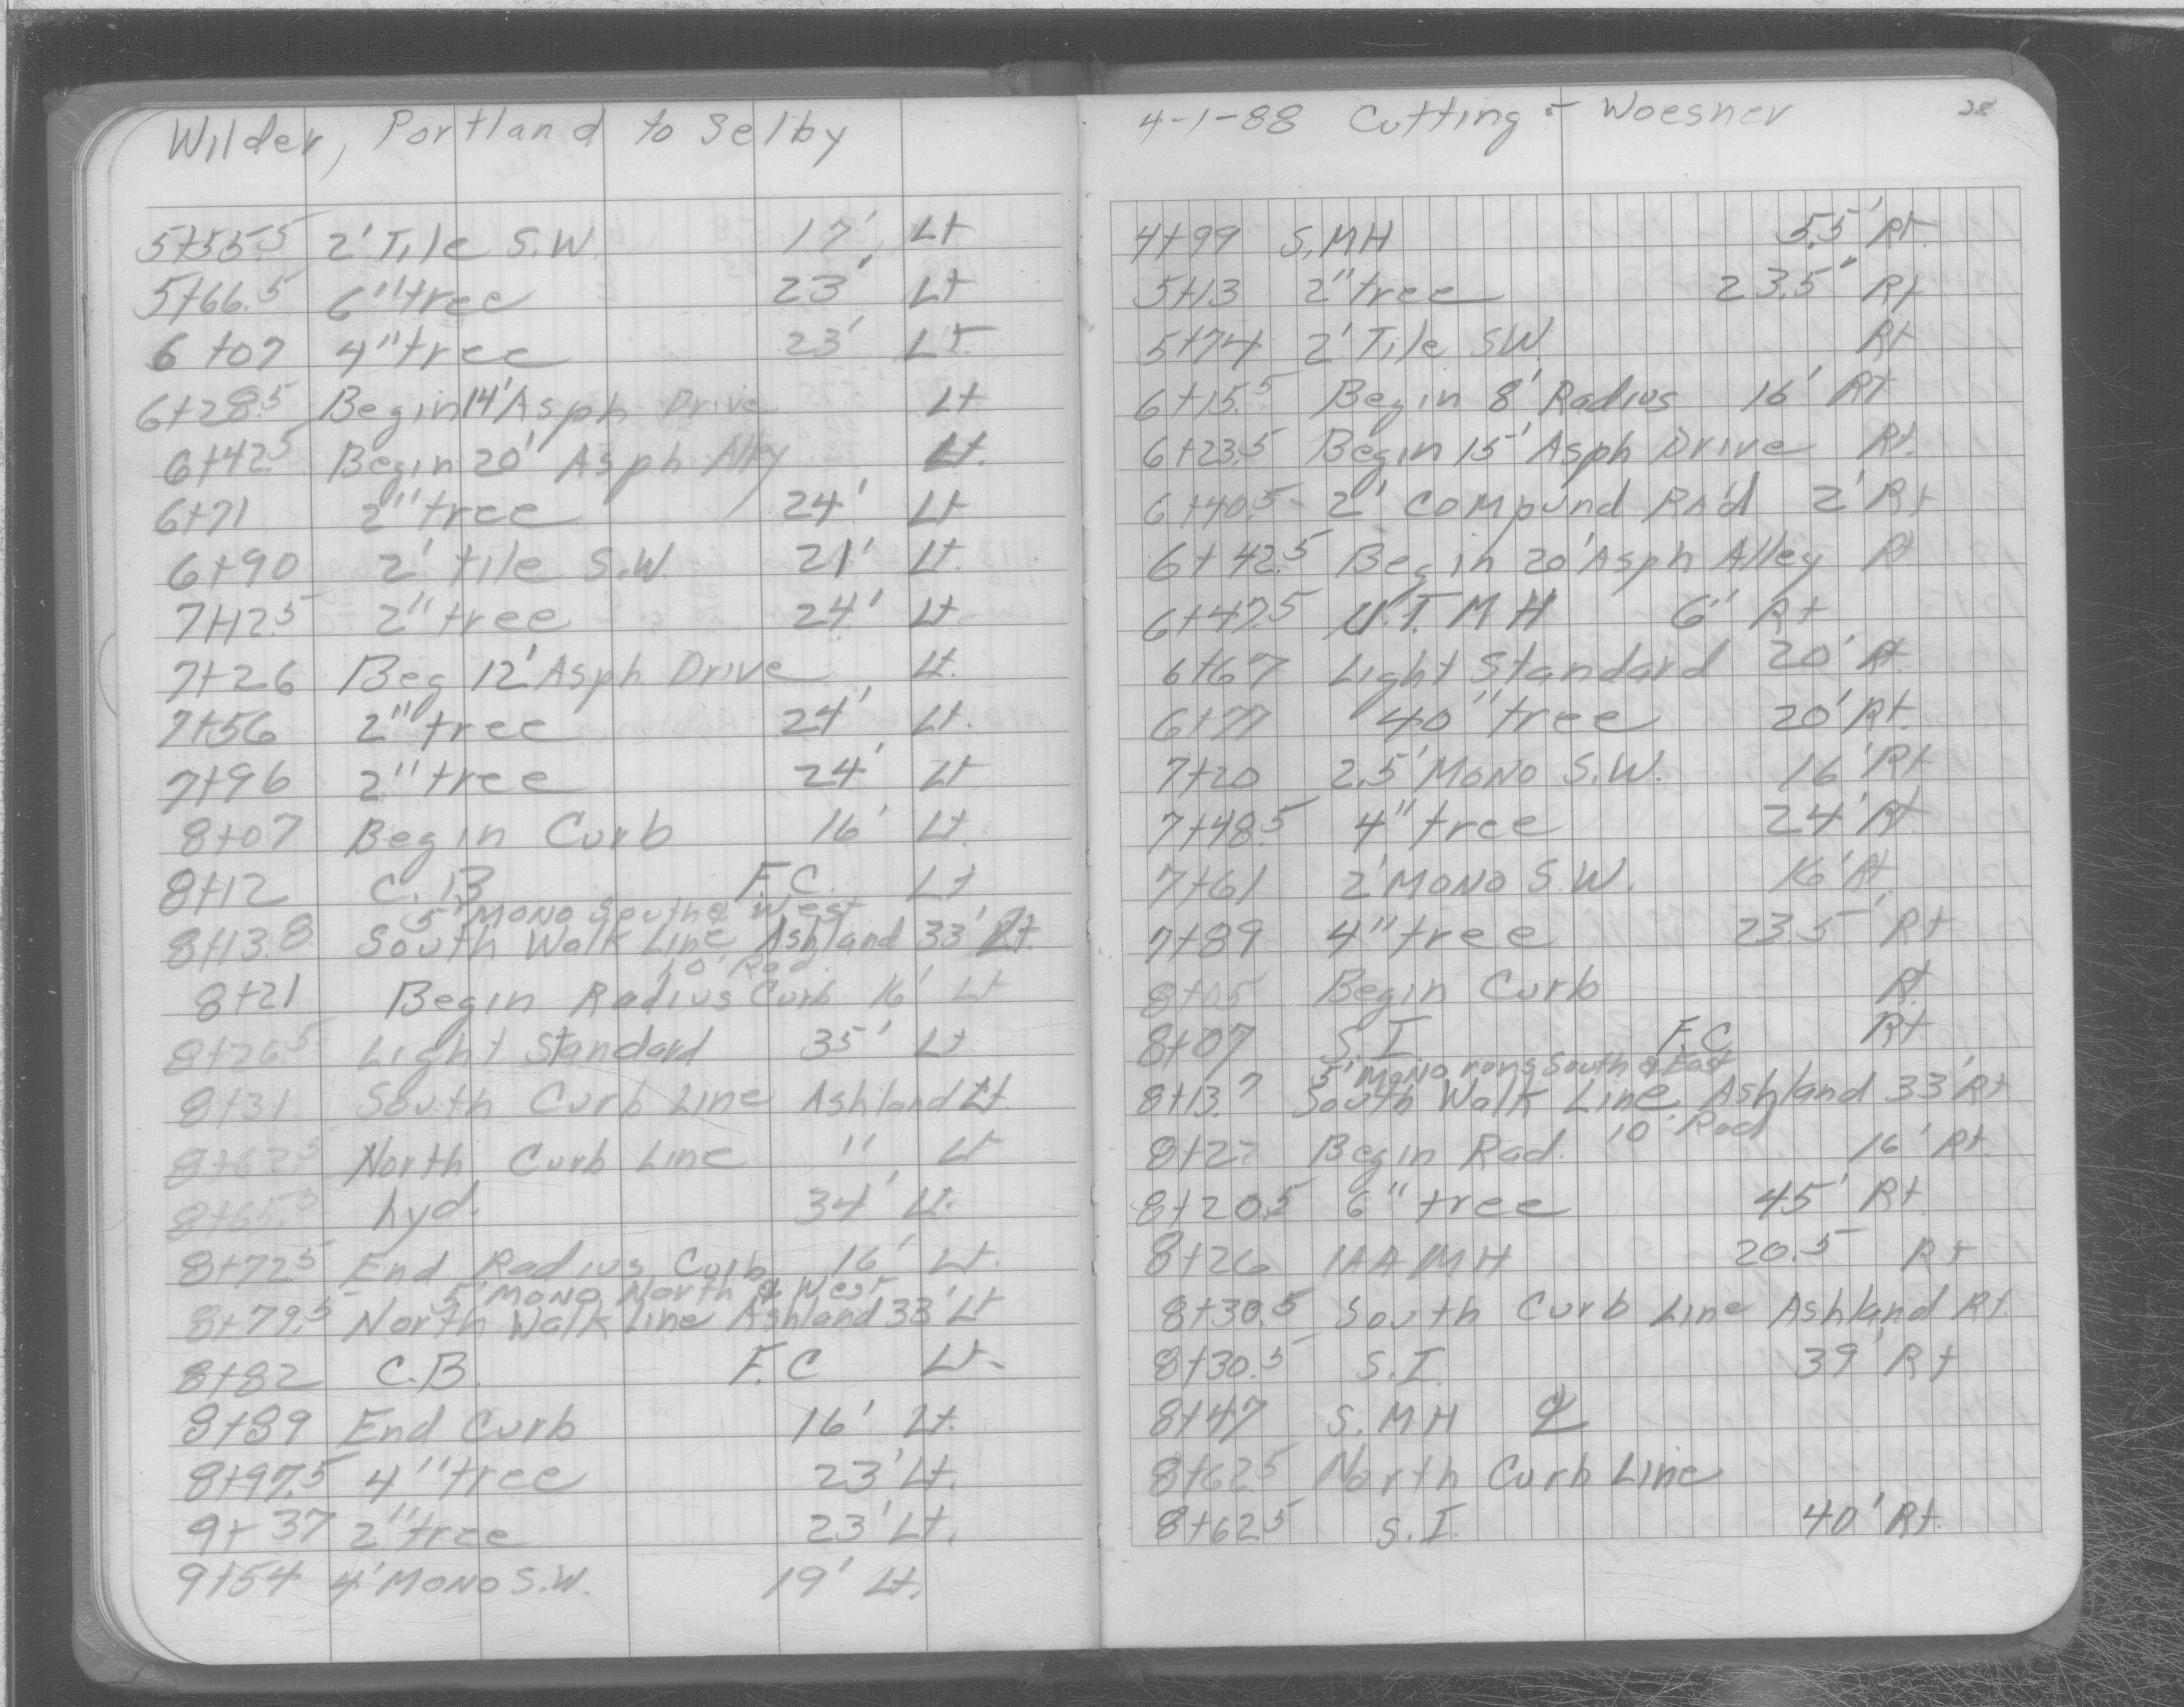 Wilder, Portland to Selby
5+55.5 2' Tile S.W. 17' Lt
5+66.5 6" tree 23' Lt
6+07 4" tree 23' Lt
6+28.5 Begin 14' Asph Drive Lt
6+42.5 Begin 20' Asph Alley Lt.
6+71 2" tree 24' Lt
6+90 2' tile S.W. 21' Lt.
7+12.5 2" tree 24' Lt
7+26 Beg 12' Asph Drive Lt.
7+56 2" tree 24' Lt.
7+96 2" tree 24' Lt
8+07 Begin Curb 16' Lt.
8+12 C.B F.C. Lt
5' MONO South & West
8+13.8 South Walk Line Ashland 33' Lt.
10' Rad.
8+21 Begin Radius Curb 16' Lt
8+26.5 Light Standard 35' Lt
8+31 South Curb Line Ashland Lt.
8+62.5 North Curb Line " Lt
hyd. 34' Lt.
8+72.5 End Radius Curb 16' Lt.
5' MONO North & West
8+79.5 North Walk Line Ashland 33' Lt
8+82 C.B. F.C Lt.
8+89 End Curb 16' Lt.
8+97.5 4" tree 23' Lt.
9+37 2" tree 23' Lt.
9+54 4' MONO S.W. 19' Lt.
4-1-88 Cutting - Woesner 38
4+99 S.MH 5.5' Rt.
5+13 2" tree 23.5' Rt
5+74 2' Tile S.W. Rt
6+15.5 Begin 8' Radius 16' Rt
6+23.5 Begin 15' Asph Drive Rt.
6+40.5 2' Compund Rad 2' Rt
6+42.5 Begin 20' Asph Alley Rt
6+47.5 U.T. MH 6' Rt
6+67 Light Standard 20' Rt.
6+77 40" tree 20' Rt.
7+20 2.5' MONO S.W. 16' Rt
7+48.5 4" tree 24' Rt
7+61 2' MONO S.W. 16' Rt.
7+89 4" tree 23.5' Rt
8+05 Begin Curb Rt.
8+07 S.I F.C. Rt
5' MONO runs South & East
8+13.7 South Walk Line Ashland 33' Rt
10' Rad
Begin Rad. 16' Rt.
8+20.5 6" tree 45' Rt
8+26 MH 20.5 Rt
8+30.5 South Curb Line Ashland Rt.
8+30.5 S.I. 39' Rt
8+47 S.MH ℄
8+62.5 North Curb Line
8+62.5 S.I. 40' Rt.